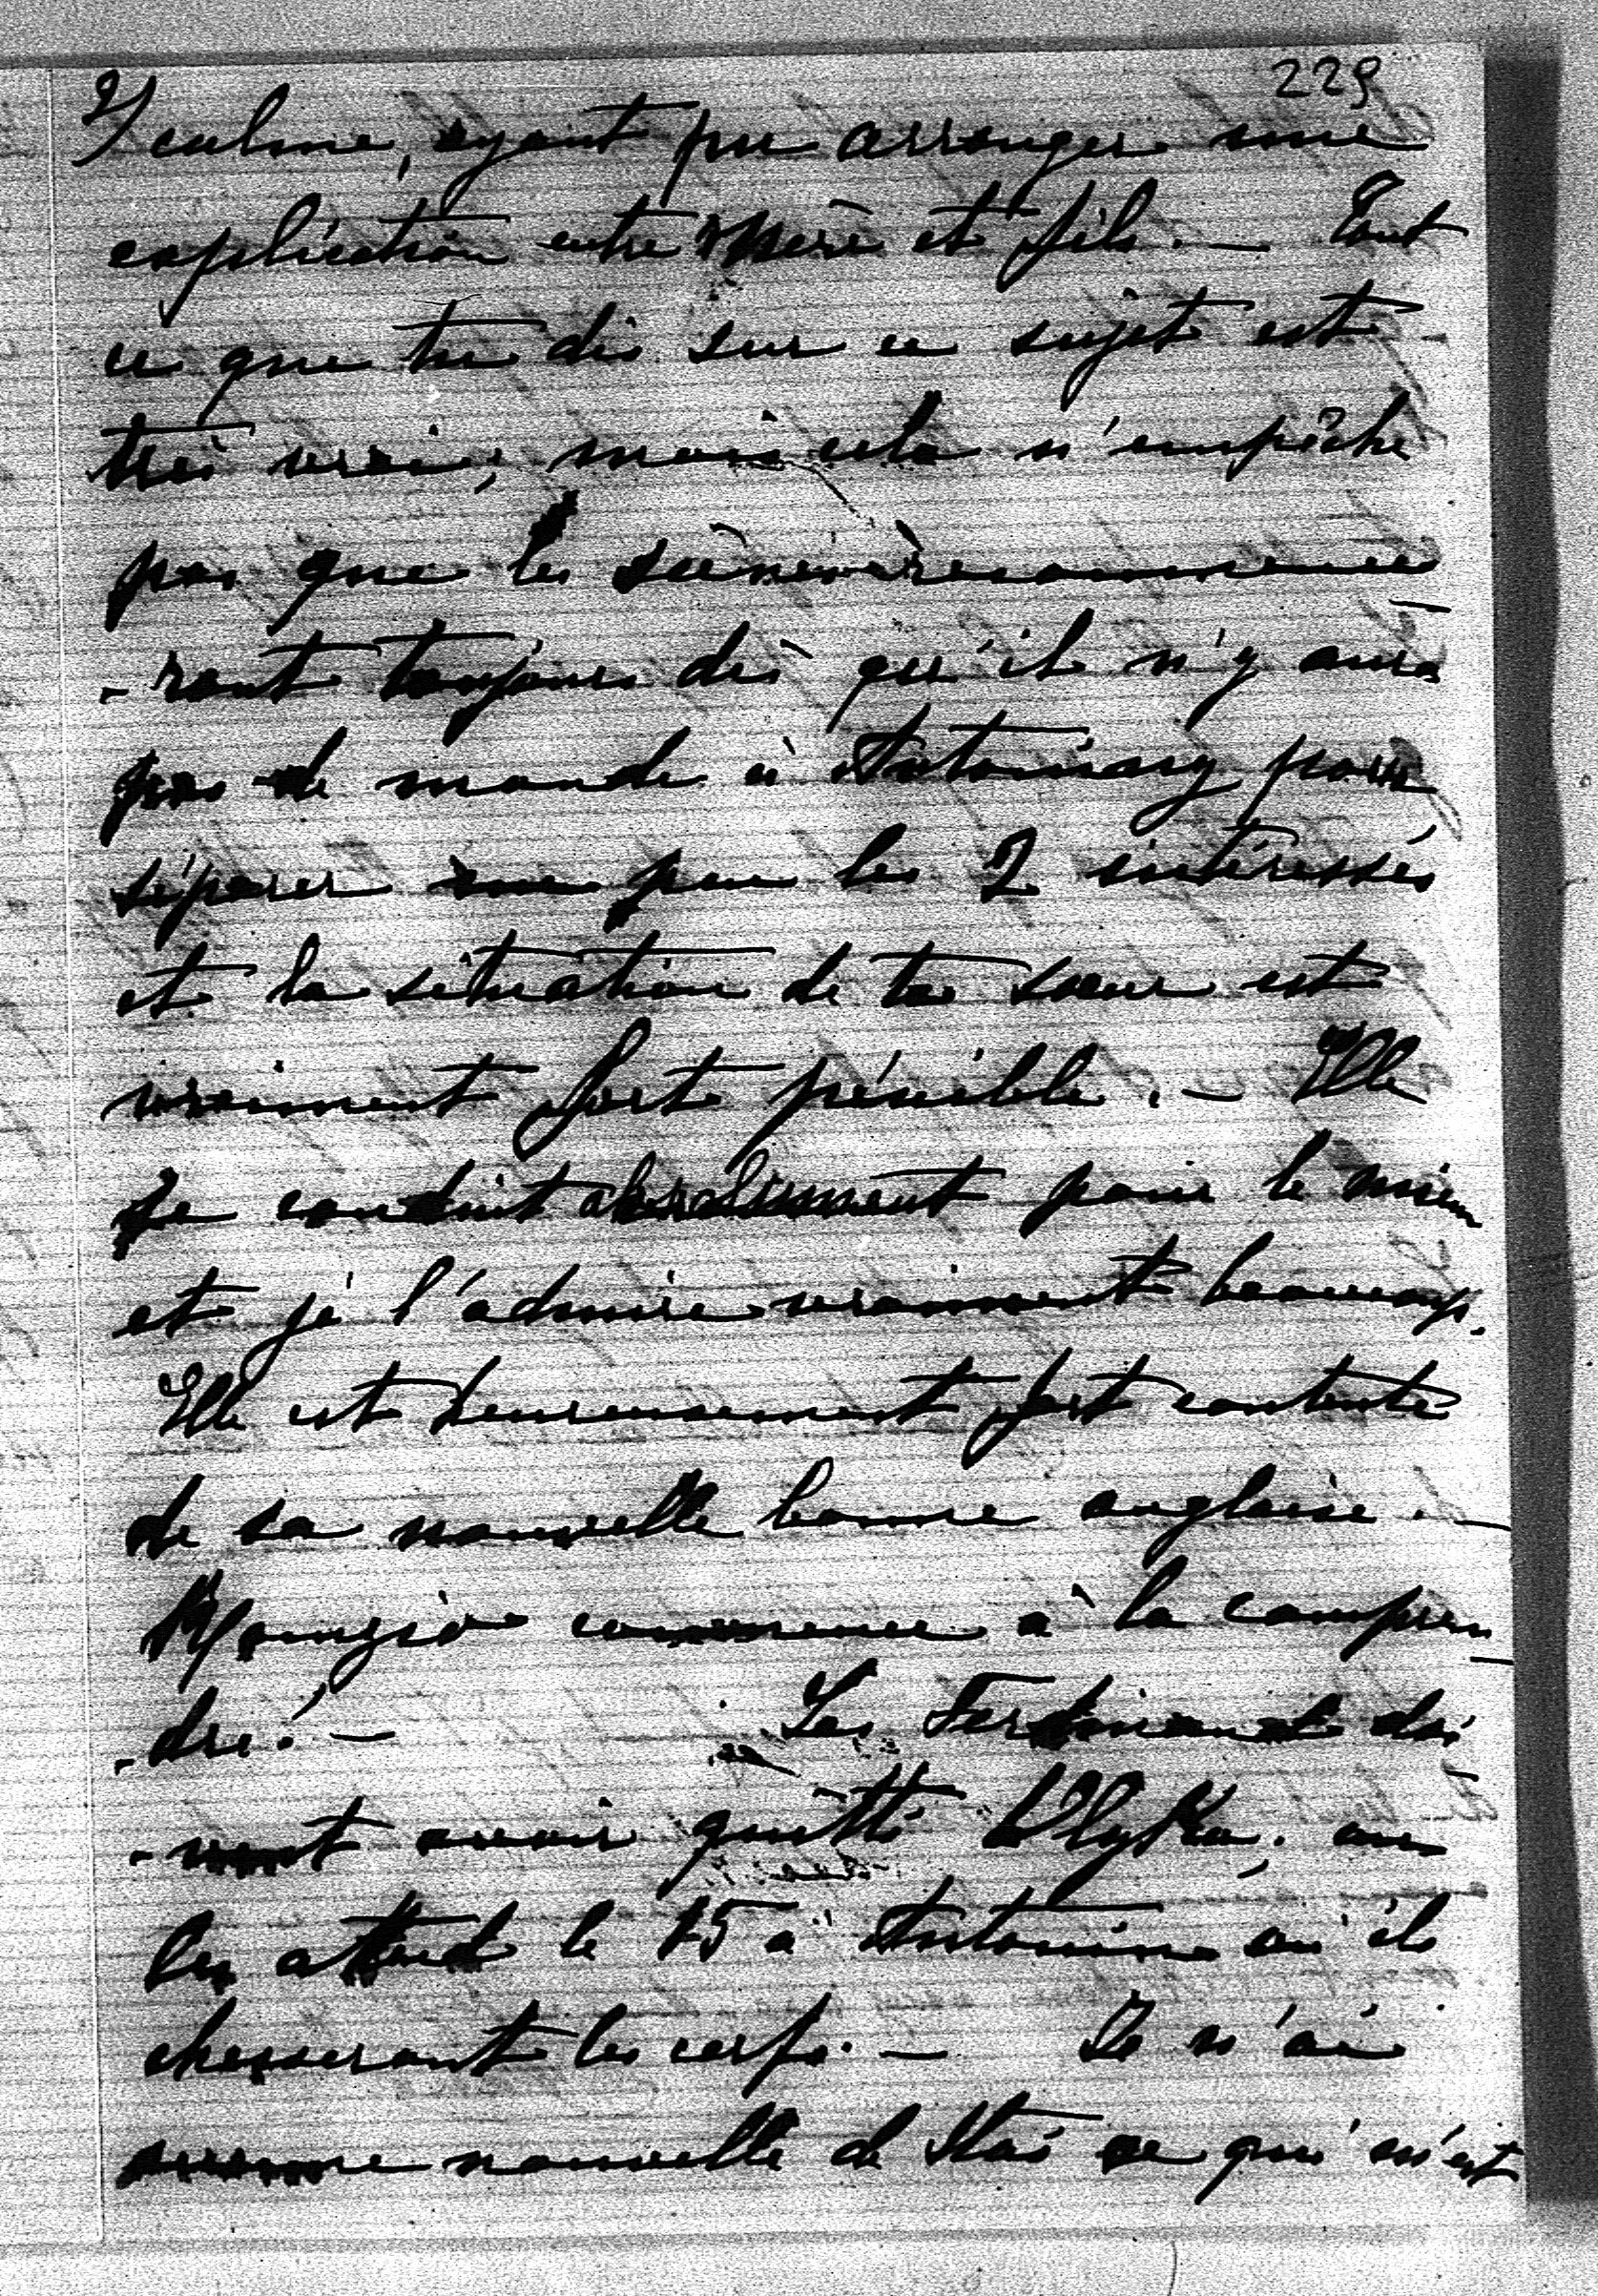 229
2/ calme, ayant pu arranger une
explication entre mère et fils. — Tout
ce que tu dis sur ce sujet est
très vrai; mais cela n'empêche
pas que les scènes recommence
-ront toujours dès qu'il n'y aura
pas de monde à Antoniny pour
séparer un peu les 2 intéressés
et la situation de ta sœur est
vraiment fort pénible. — Elle
se conduit absolument pour le mieux
et je l'admire vraiment beaucoup.
Elle est heureusement fort contente
de sa nouvelle bonne anglaise. —
commence à la compren
-dre! — Les Ferdinand doi
-vent avoir quitté Olyka, on
les attend le 15 à Antonin où ils
chasseront les cerfs. — Je n'ai
aucune nouvelle de Stas ce qui n'est